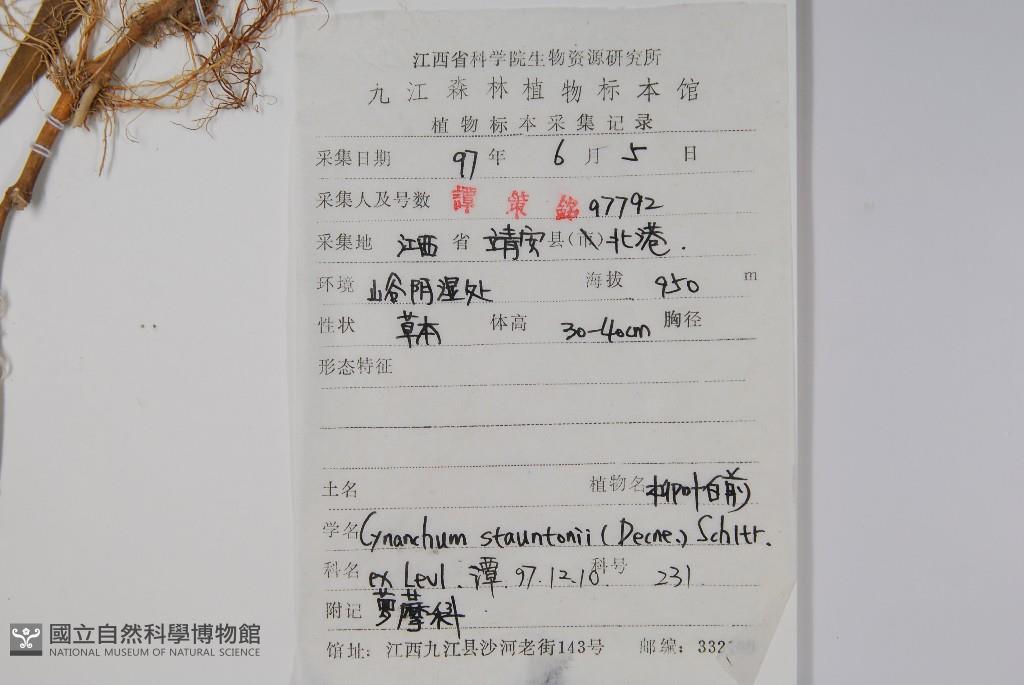 江西省科学院生物资源研究所
九江森林植物标本馆
植物标本采集记录
采集日期 97年 6月 5 日
采集人及号数 譚策銘 97792
采集地 江西 省 靖安县(市)北港.
环境 山谷阴湿处 海拔 950 m
性状 草本 体高 30-40cm 胸径
形态特征
土名 植物名 柳叶白前
学名 Cynanchum stauntonii (Decne.) Schltr.
科名 ex Levl. 潭 97.12.10 科号 231
附记 萝藦科
馆址: 江西九江县沙河老街143号 邮编: 332
國立自然科學博物館
NATIONAL MUSEUM OF NATURAL SCIENCE